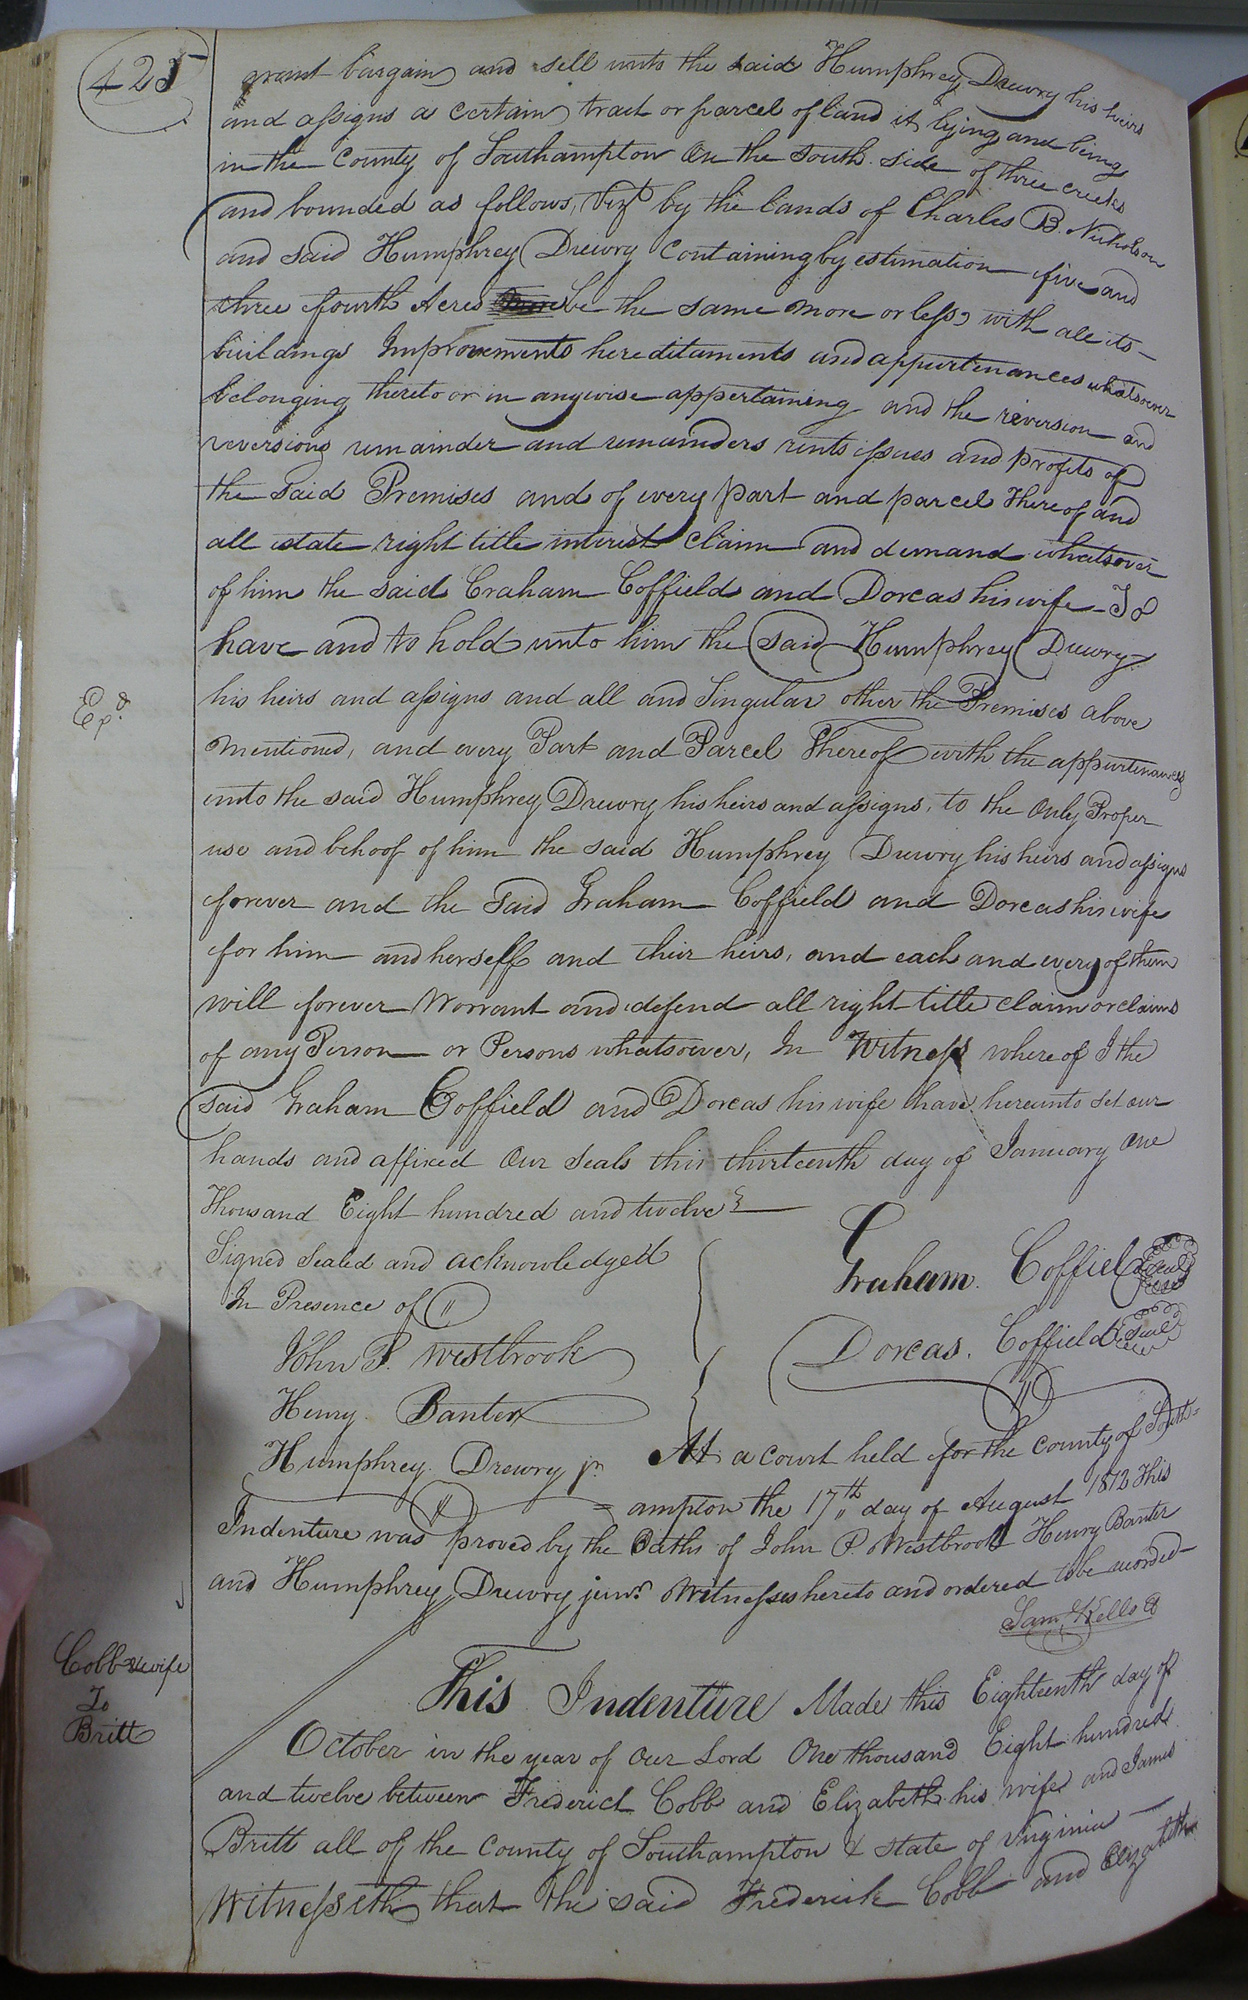 425
grant bargain and sell unto the said Humphrey Drewry his heirs
and assigns a certain tract or parcel of land it lying and being
in the County of Southampton On the South side of three creeks
and bounded as follows, Vizt by the lands of Charles B. Nicholson
and said Humphrey Drewry Containing by estimation five and
three fourth Acres be the same more or less with all its
buildings Improvements hereditaments and appurtinances whatsoever
belonging thereto or in anywise appertaining and the reversion and
reversions remainder and remainders rents issues and profits of
the said Premises and of every part and parcel thereof and
all estate right title interest claim and demand whatsover
of him the said Graham Coffield and Dorcas his wife To
have and to hold unto him the said Humphrey Drewry
Exd
his heirs and assigns and all and Singular other the Premises above
mentioned, and every Part and Parcel thereof with the appurtinances
unto the said Humphrey Drewry his heirs and assigns, to the Only Proper
use and behoof of him the said Humphrey Drewry his heirs and assigns
forever and the said Graham Coffield and Dorcas his wife
for him and herself and their heirs, and each and every of them
will forever Worrant and defend all right title claim or claims
of any Person or Persons whatsoever, In Witness whereof I the
said Graham Coffield and Dorcas his wife have hereunto set our
hands and affixed Our seals this thirteenth day of January One
Thousand Eight hundred and twelve
Signed Sealed and acknowledged
In Presence of
Graham Coffield Seal
John P. Westbrook
Dorcas. Coffield Seal
Henry Banter
Humphrey Drewry jr
At a court held for the county of South=
=ampton the 17th day of August 1812 This
Indenture was proved by the Oaths of John P. Westbrook Henry Banter
and Humphrey Drewry junr Witnesses hereto and ordered to be recorded
Saml Kello Ct
Cobb & wife
To
Britt
This Indenture Made this Eighteenth day of
October in the year of Our Lord One thousand Eight hundred
and twelve between Frederick Cobb and Elizabeth his wife and James
Britt all of the County of Southampton & state of Virginia
Witnesseth that the said Frederick Cobb and Elizabeth